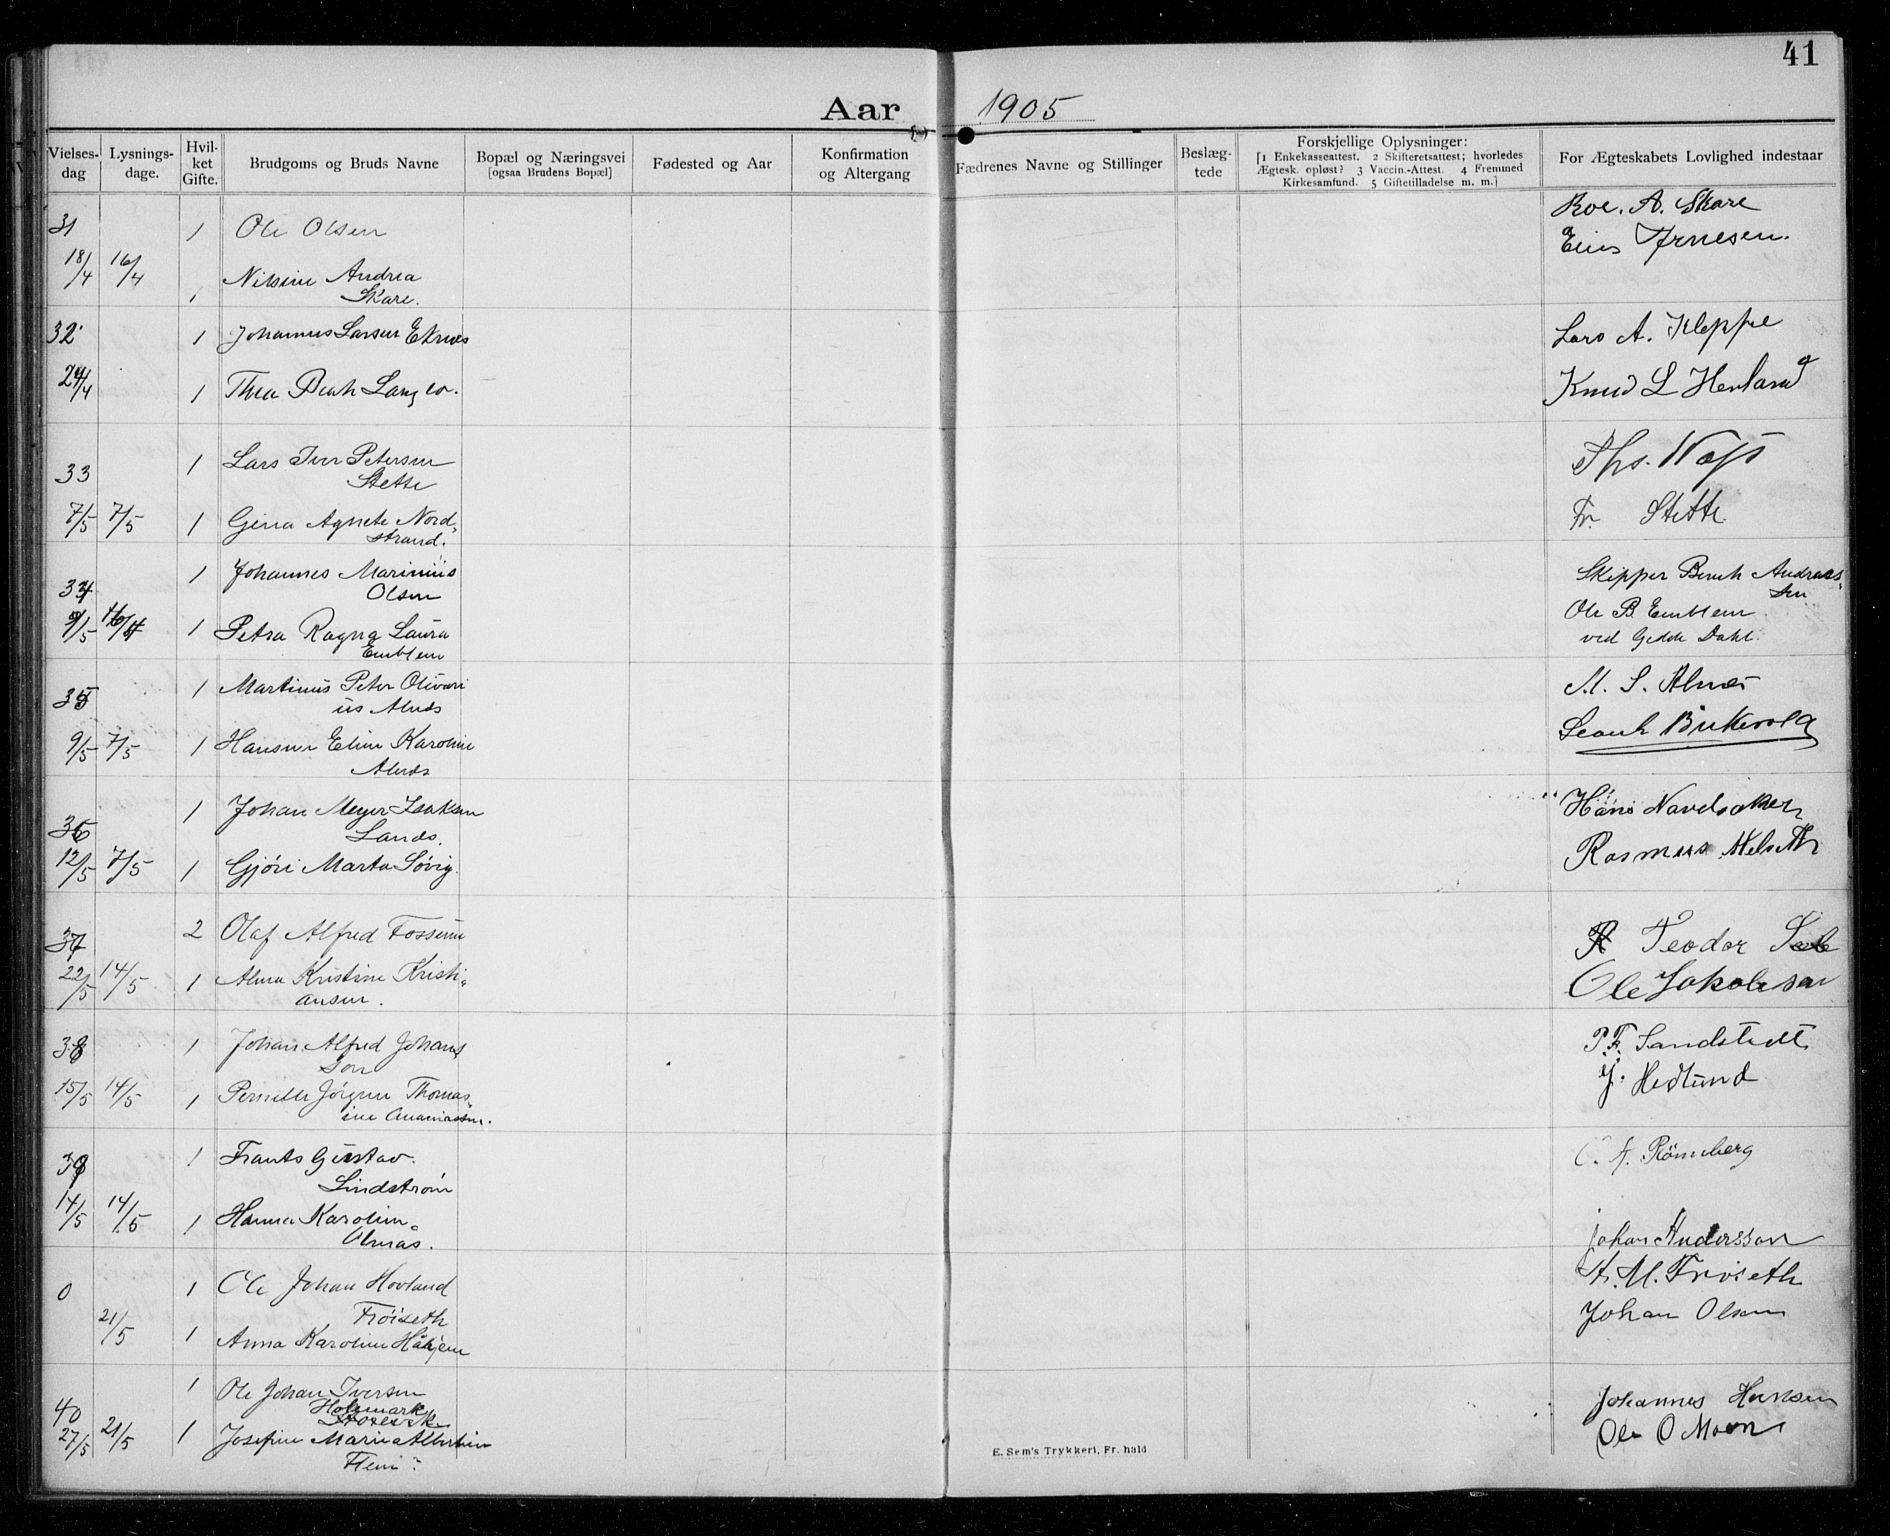 41
Aar 1905
Vielses-dag
Lysnings-dage.
Hvil-ket Gifte.
Brudgoms og Bruds Navne
Bopæl og Næringsvei
[ogsaa Brudens Bopæl]
Fødested og Aar
Konfirmation og Altergang
Fædrenes Navne og Stillinger
Beslæg-tede
Forskjellige Oplysninger:
[1 Enkekasseattest. 2 Skifteretsattest; hvorledes
Ægtesk. opløst? 3 Vaccin.-Attest. 4 Fremmed
Kirkesamfund. 5 Giftetilladelse m. m.]
For Ægteskabets Lovlighed indestaar
31 1 Ole Olsen
Roe. A. Skare
Arnesen.
18/4 16/4 1 Nilsine Andrea
Skare.
32 1 Johannes Larsen Eknes
Lars A. Kleppe
24/4 1 Thea Langlo.
Knud L
33 1 Lars Iver Petersen
Stette
Ths.
7/5 7/5 1 Gina Agnete Nord-
strand.
Fr. Stette
34 1 Johannes Marinius
Olsen
Skipper Bernh Andreas-
sen
9/5 1 Petra Ragna Laura
Emblem
Ole B Emblem
ved Gedde Dahl.
35 1 Martinus Peter Olivari
us Alnæs
M. S. Alnæs
9/5 7/5 1 Hansine Eline Karoline
Alnæs
36 1 Johan Meyer Isaksen
Lands.
Hans
12/5 7/5 1 Gjøri Marta Søvig.
Rasmus Melseth
37 2 Olaf Alfred Fossum
Teodor
22/5 14/5 1 Alma Kristine Kristi-
ansen.
Ole Jakobsen
38 1 Johan Alfred Johans
son
P. F. Sandstedt
15/5 14/5 1 Pernille Jørgine Thomas-
ine Ananiassen.
J. Hedlund
39 1 Frants Gustav
Lindstrøm
C. A. Rönneberg
14/5 14/5 1 Hanna Karoline
Olmas.
Johan Andersson
0 1 Ole Johan Hovland
Frøiseth
A. M. Frøiseth
21/5 1 Anna Karoline Håhjem
Johan Olsen
40 1 Ole Johan Iversen
Holemark
Johannes Hansen
27/5 21/5 1 Josefine Marie Albertine
Flem
Ole O Moen
E. Sem's Trykkeri, Fr. hald